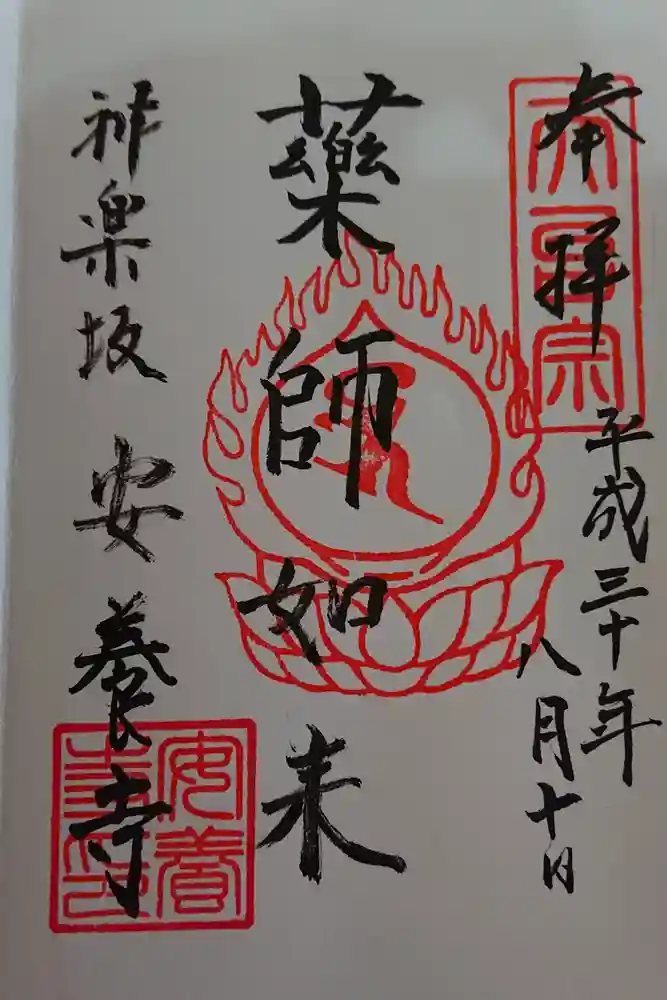 奉拝
天台宗
平成三十年
八月十日
藥師如来
神楽坂
安養寺
安養寺印